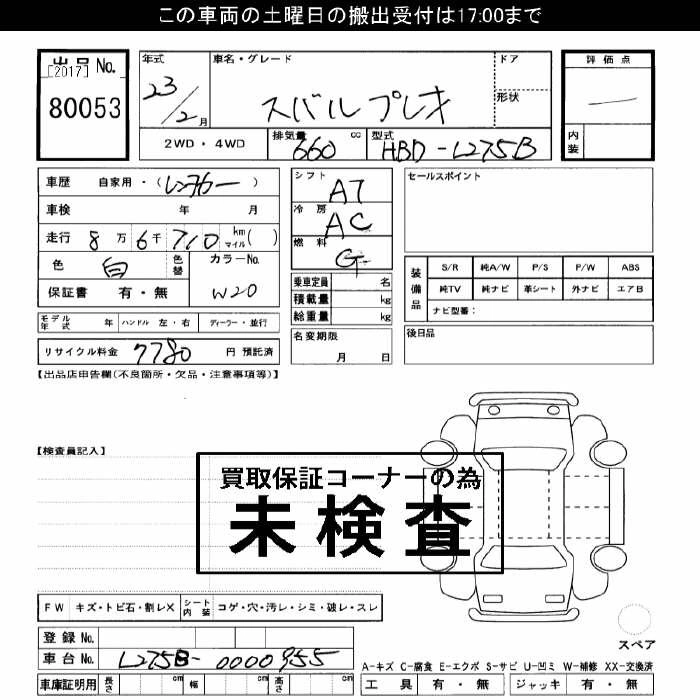 この車両の土曜日の搬出受付は17:00まで
出品 No.
[2017]
80053
年式
23/2月
車名・グレード
スバル プレオ
ドア
形状
評価点
内装
2WD・4WD
排気量
660 cc
型式
HBD-L275B
車歴 自家用・(レンタカー)
車検 年 月
走行 8万 6千 710 km マイル( )
色 白
色替
カラーNo.
W20
保証書 有・無
シフト
AT
冷房
AC
燃料
G
乗車定員 名
積載量 kg
総重量 kg
名変期限
月 日
セールスポイント
装備品
S/R 純A/W P/S P/W ABS
純TV 純ナビ 革シート 外ナビ エアB
ナビ型番:
後日品
モデル年式 年 ハンドル 左・右 ディーラー・並行
リサイクル料金 7780 円 預託済
【出品店申告欄(不良個所・欠品・注意事項等)】
【検査員記入】
買取保証コーナーの為
未検査
FW キズ・トビ石・割レX
シート内装 コゲ・穴・汚レ・シミ・破レ・スレ
登録 No.
車台 No. L275B-0000955
車庫証明用 長さ cm 幅 cm 高さ cm
スペア
A-キズ C-腐食 E-エクボ S-サビ U-凹ミ W-補修 XX-交換済
工具 有・無 ジャッキ 有・無